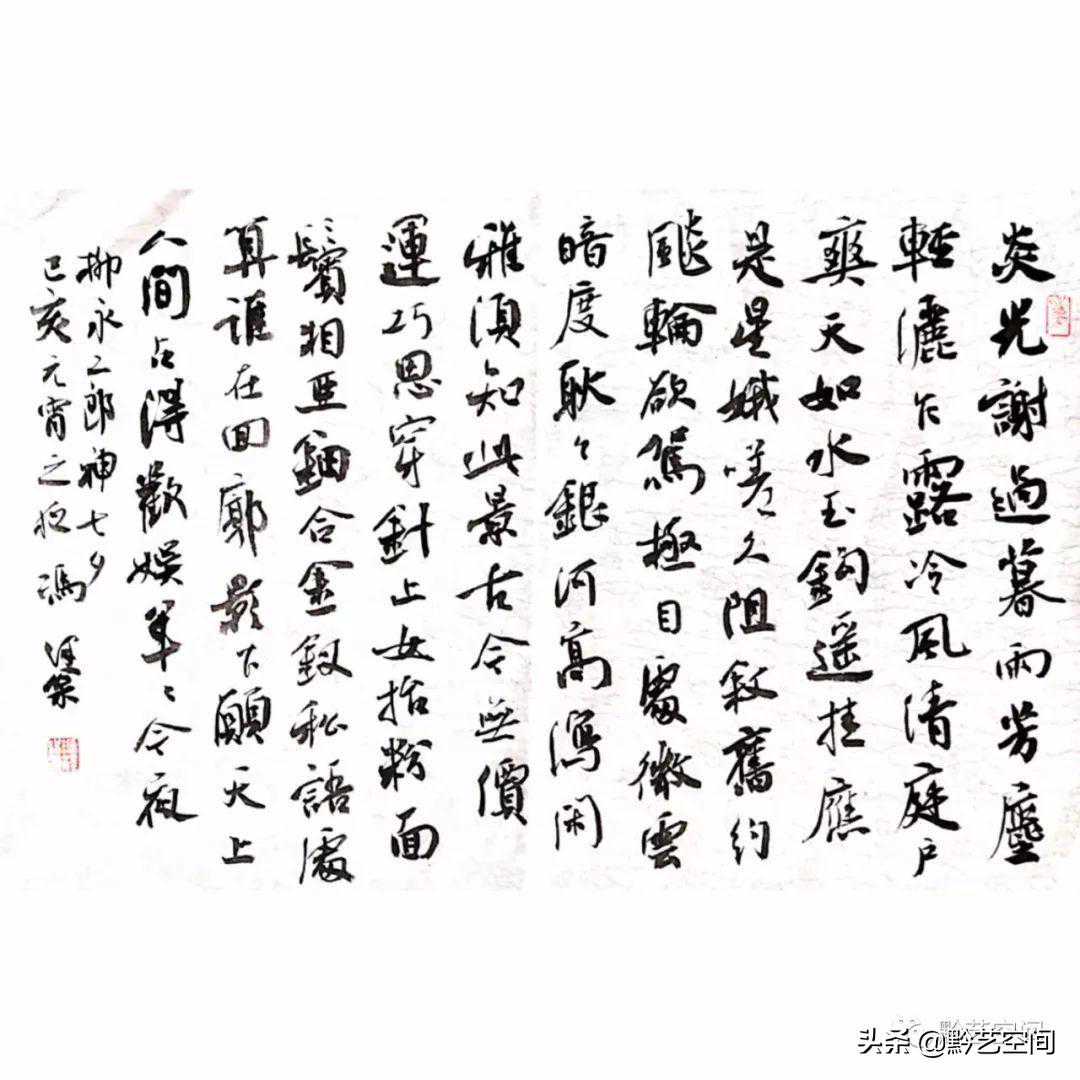 炎光謝過暮雨芳塵
輕灑乍露冷風清庭戶
爽天如水玉鉤遥挂應
是星娥嗟久阻敘舊約
飈輪欲駕極目處微雲
暗度耿々銀河高瀉闲
雅須知此景古今無價
運巧思穿針上女抬粉面
鬢相亞鈿合金釵私語處
算誰在回廊影下願天上
人間占得歡娱年々今夜
柳永二郎神七夕
己亥元宵之夜馮
头条 @黔艺空间